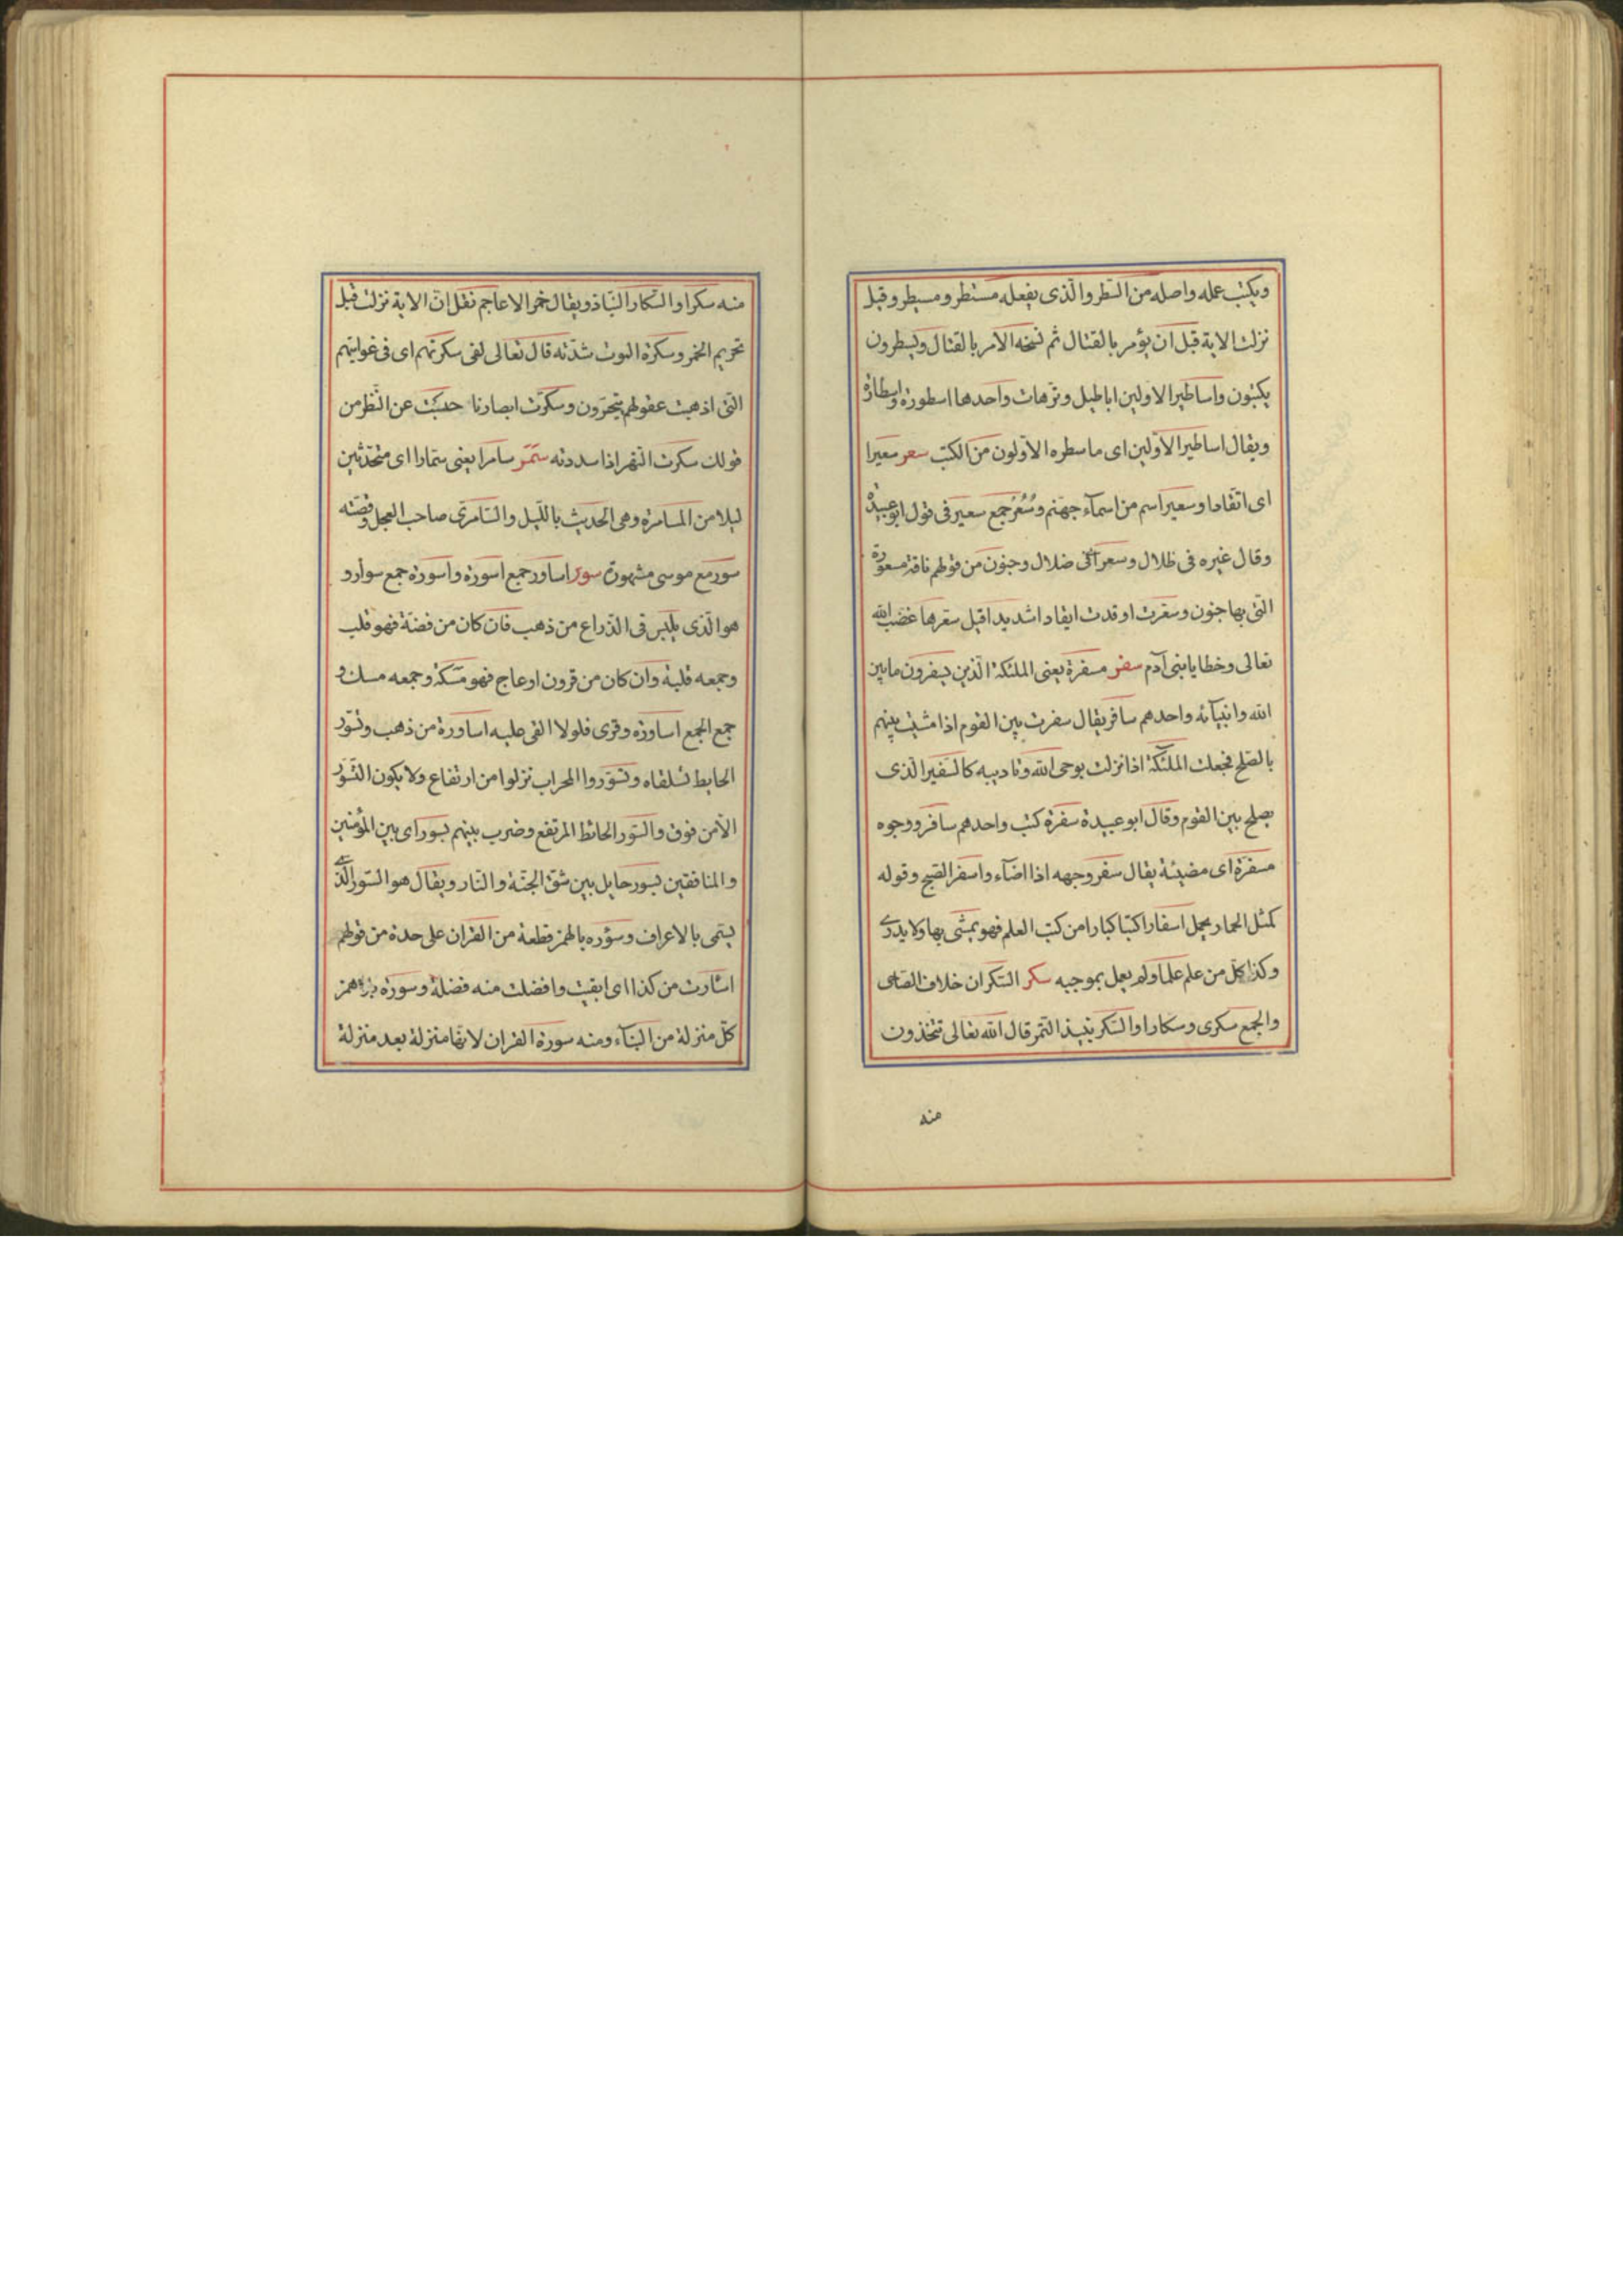 ويكتب عمله واصله من السّطر والّذى يفعله مستطر ومسيطر وقيل
نزلت الاية قبل ان يؤمر بالقتال ثم نسخه الامر بالقتال ويسطرون
يكتبون واساطير الاولين اباطيل وترهات واحدها اسطورة واسطارة
ويقال اساطير الاوّلين اى ما سطره الاوّلون من الكتب سعر سعيرا
اى اتّقادا وسعير اسم من اسمآء جهنم وسُعُر جمع سعير فى قول ابو عبيدة
وقال غيره فى ظلال وسعر اى فى ضلال وجنون من قولهم ناقة مسعورة
التى بها جنون وسعّرت اوقدت ايقادا شديدا قيل سعّرها غضب الله
تعالى وخطايا بنى آدم سفر سفرة يعنى الملئكة الّذين يسفرون ما بين
الله وانبيآئه واحدهم سافر يقال سفرت بين القوم اذا مشيت بينهم
بالصّلح فجعلت الملئكة اذا نزلت بوحى الله وتاديبه كالسّفير الّذى
يصلح بين القوم وقال ابو عبيدة سفرة كتب واحدهم سافر ووجوه
مسفرة اى مضيئة يقال سفر وجهه اذا اضآء واسفر الصّبح وقوله
كمثل الحمار يحمل اسفارا كتبا كبارا من كتب العلم فهو يمشى بها ولا يدرى
وكذا كلّ من علم علما ولم يعمل بموجبه سكر السّكران خلاف الصّاحى
والجمع سكرى وسكارا والسّكر نبيذ التّمر قال الله تعالى تتّخذون
منه
منه سكرا والسّكار النّباذ ويقال خمر الاعاجم نقل انّ الاية نزلت قبل
تحريم الخمر وسكرة الموت شدّته قال تعالى لفى سكرتهم اى فى غوايتهم
التى اذهبت عقولهم يتحيّرون وسكّرت ابصارنا حبست عن النّظر من
قولك سكرت النّهر اذا سددته سمر سامرا يعنى سمّارا اى متحدّثين
ليلا من المسامرة وهى الحديث بالليل والسّامرى صاحب العجل وقصّته
مع موسى مشهورة سور اساور جميع اسورة واسورة جمع سوار و
هو الّذى يلبس فى الذّراع من ذهب فان كان من فضّة فهو قلب
وجمعه قلبة وان كان من قرون او عاج فهو مسكة وجمعه مسك و
جمع الجمع اساورة وقرى فلولا القى عليه اساورة من ذهب وتسوّر
الحايط تسلقاه وتسوّروا المحراب نزلوا من ارتفاع ولا يكون التّسوّر
الّا من فوق والسّور الحائط المرتفع وضرب بينهم بسور اى بين المؤمنين
والمنافقين بسور حايل بين شقّ الجنّة والنّار ويقال هو السّور الّذى
يسمّى بالاعراف وسؤره بالهمز قطعة من القران على حدة من قولهم
اسارت من كذا اى ابقيت وافضلت منه فضلة وسورة بلا همز
كلّ منزلة من البنآء ومنه سورة القران لانّها منزلة بعد منزلة